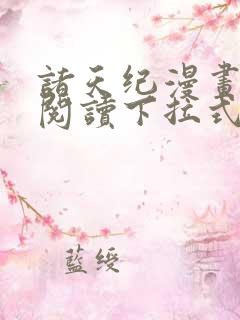 諸天纪漫畫
閱讀下拉式
藍绶